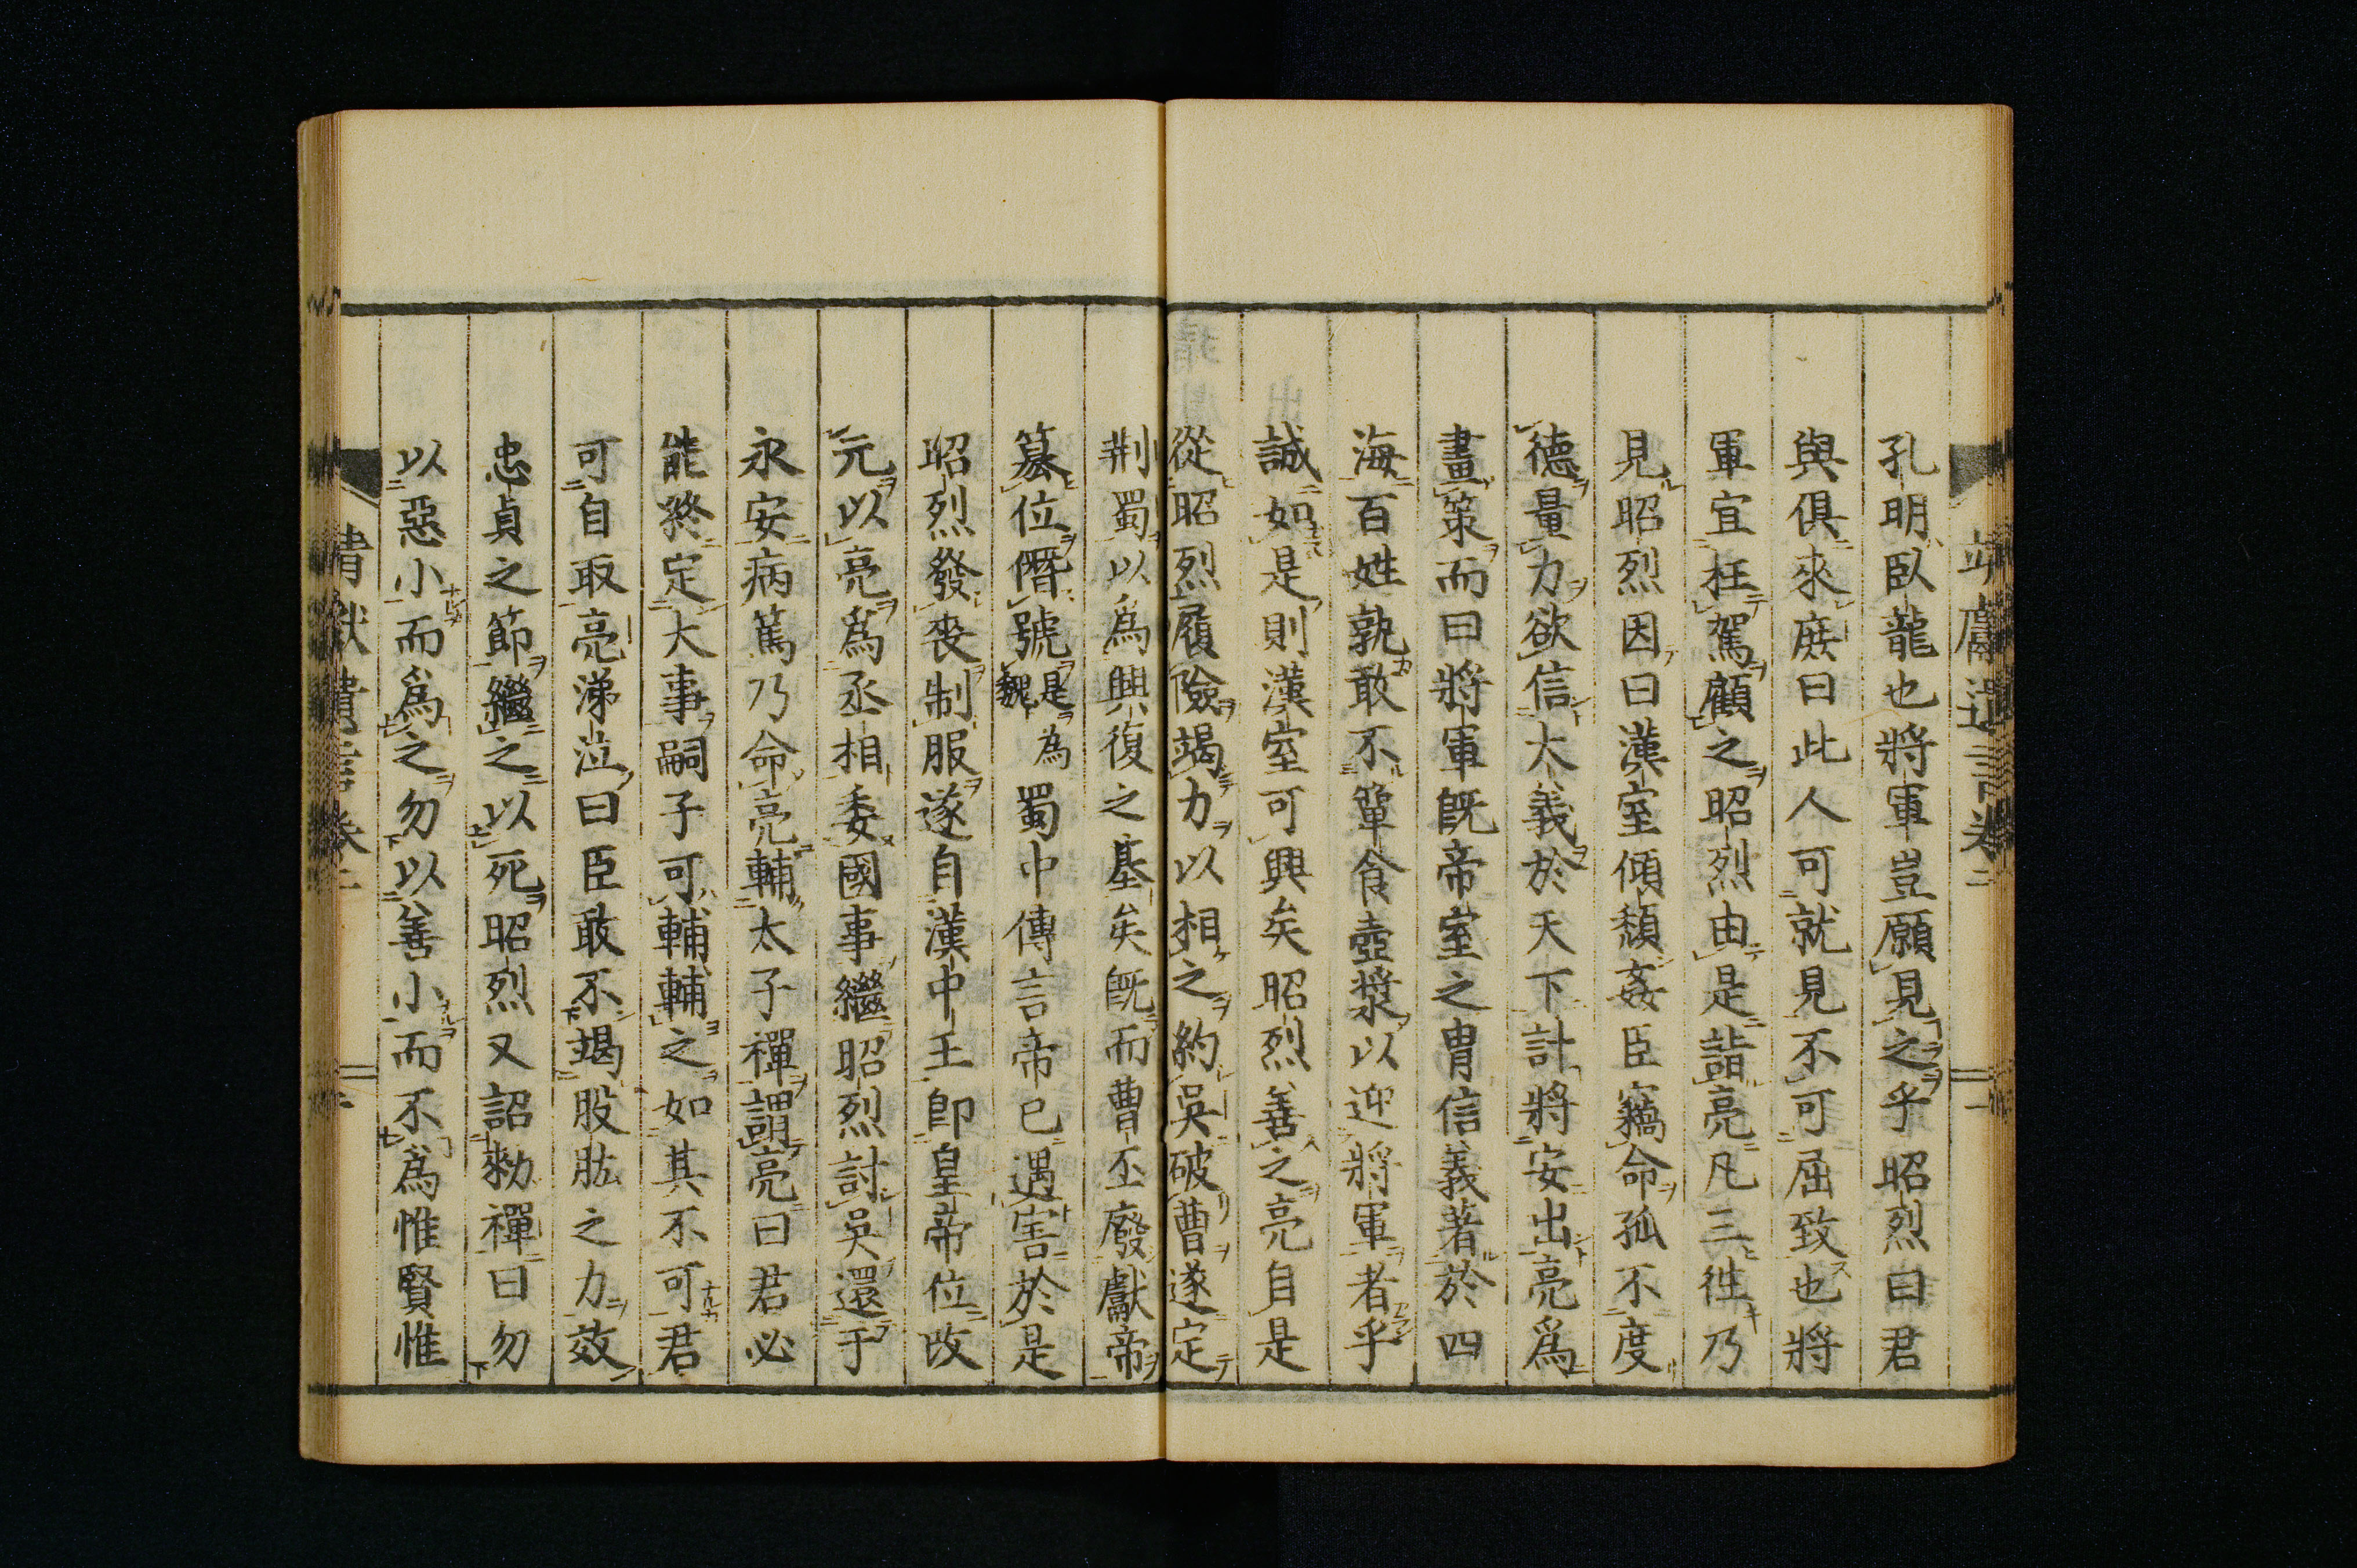 靖獻遺言卷二
孔明臥龍也將軍豈願見之乎昭烈曰君
與俱來庶曰此人可就見不可屈致也將
軍宜枉駕顧之昭烈由是詣亮凡三徃乃
見昭烈因曰漢室傾頽姦臣竊命孤不度
德量力欲信大義於天下計將安出亮爲
畫策而曰將軍既帝室之胄信義著於四
海百姓孰敢不簞食壺漿以迎將軍者乎
誠如是則漢室可興矣昭烈善之亮自是
從昭烈履險竭力以相之約吳破曹遂定
荆蜀以爲興復之基矣既而曹丕廢獻帝
簒位僭號是為魏蜀中傳言帝已遇害於是
昭烈發喪制服遂自漢中王卽皇帝位改
元以亮爲丞相委國事繼昭烈討吳還于
永安病篤乃命亮輔太子禪謂亮曰君必
能終定大事嗣子可輔輔之如其不可君
可自取亮涕泣曰臣敢不竭股肱之力效
忠貞之節繼之以死昭烈又詔勑禪曰勿
以惡小而爲之勿以善小而不爲惟賢惟
靖獻遺言卷二